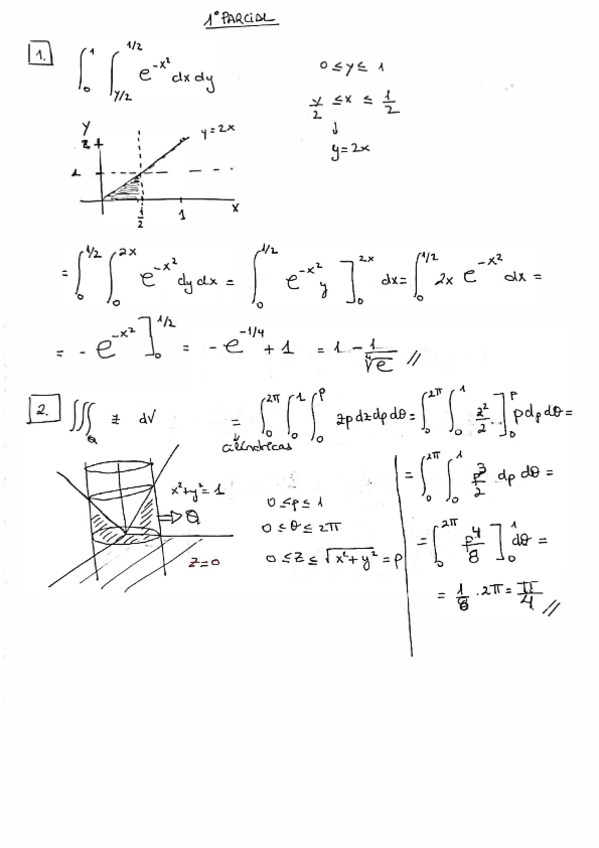 1º PARCIAL
1. ∫₀¹ ∫_{y/2}^{1/2} e^{-x²} dx dy
0 ≤ y ≤ 1
y/2 ≤ x ≤ 1/2
↓
y = 2x
y
2
y = 2x
1
1/2 1 x
= ∫₀^{1/2} ∫₀^{2x} e^{-x²} dy dx = ∫₀^{1/2} e^{-x²} y ]₀^{2x} dx = ∫₀^{1/2} 2x e^{-x²} dx =
= - e^{-x²} ]₀^{1/2} = - e^{-1/4} + 1 = 1 - 1/∜e //
2. ∭_Q z dV = ∫₀^{2π} ∫₀¹ ∫₀^ρ zρ dz dρ dθ = ∫₀^{2π} ∫₀¹ z²/2 ]₀^ρ ρ dρ dθ =
cilíndricas
x² + y² = 1
⇒ Q
z = 0
0 ≤ ρ ≤ 1
0 ≤ θ ≤ 2π
0 ≤ z ≤ √(x² + y²) = ρ
= ∫₀^{2π} ∫₀¹ ρ³/2 · dρ dθ =
= ∫₀^{2π} ρ⁴/8 ]₀¹ dθ =
= 1/8 · 2π = π/4 //